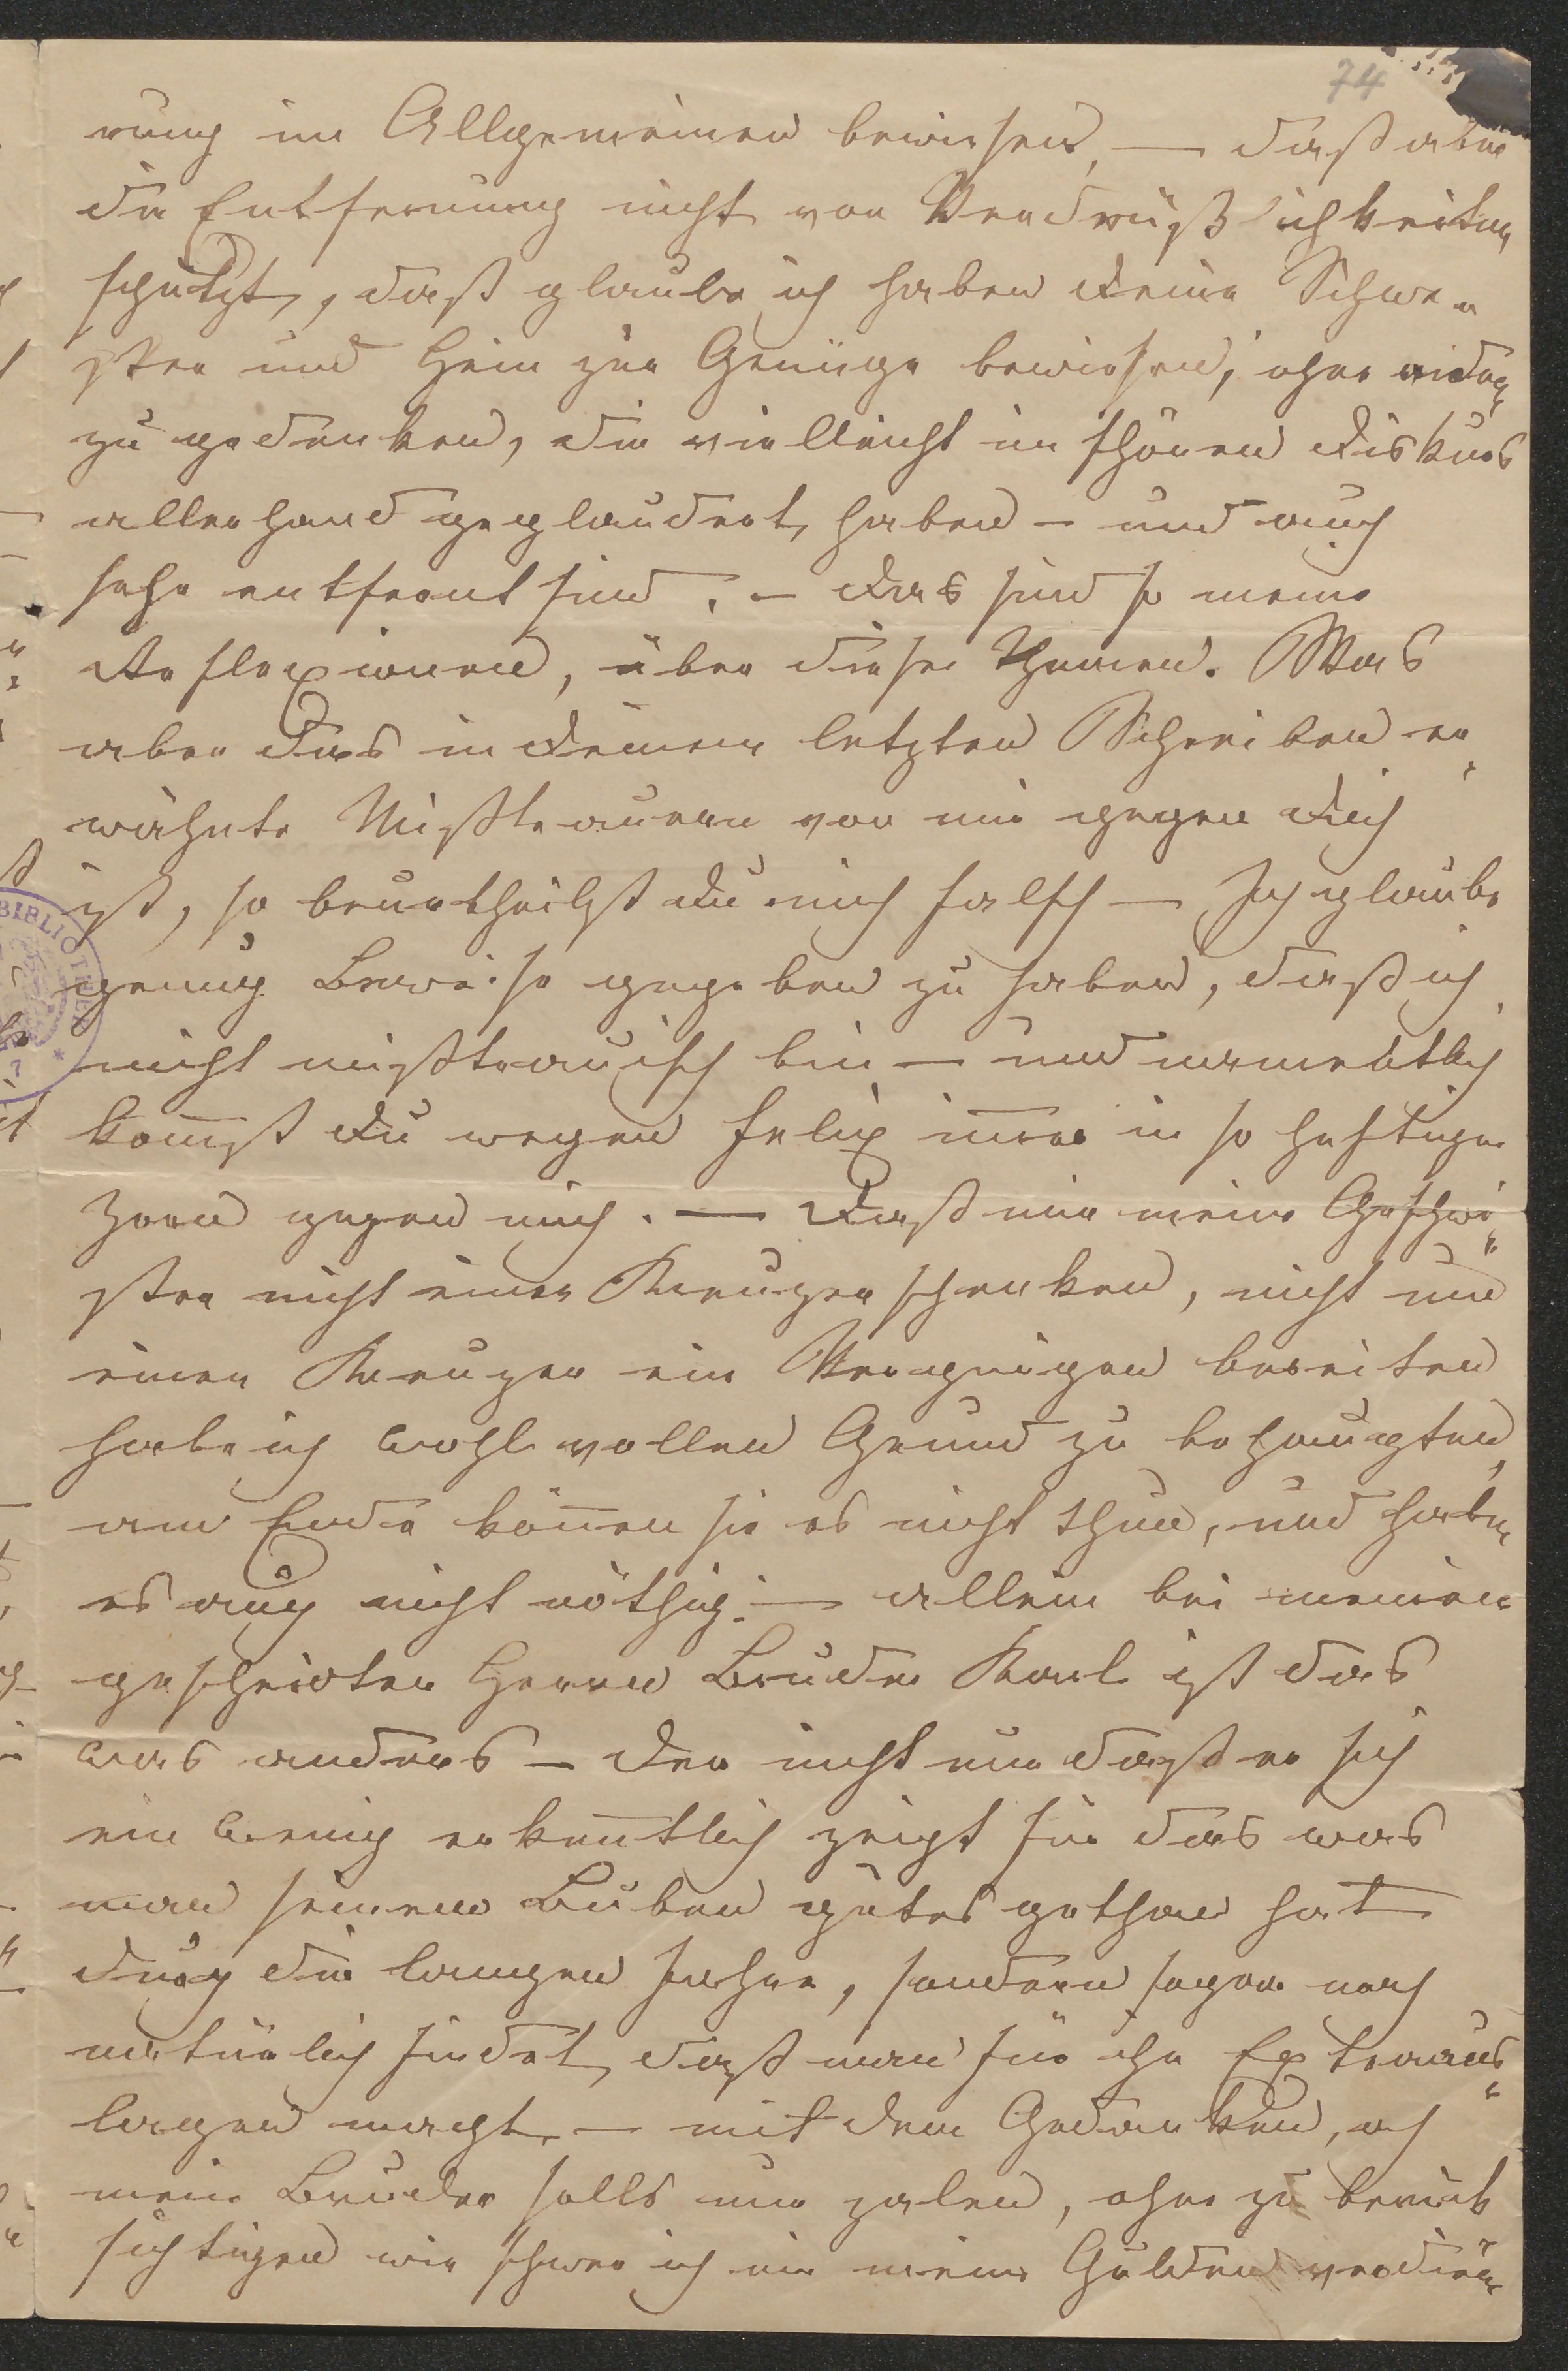 74
rung im Allgemeinen bewiesen, — daß aber
die Entfernung nicht vor Verdrüßlichkeiten
schützt, daß glaube ich haben deine Schwe-
ster und Heim zur Genüge bewiesen, ohne
zu gedenken, die vielleicht im schönen Diskurs
allerhand geplaudert haben – und auch
sehr entfernt sind. – Das sind so meine
Reflexionen, über dieses Thema. Was
aber das in deinem letzten Schreiben er„
wähnte Mißtrauen von mir gegen dich
ist, so beurtheilst du mich falsch — Ich glaube
genug Beweise gegeben zu haben, daß ich
nicht mißtrauisch bin — und namentlich
kom̅st du wegen Felix im̅er in so heftigen
Zorn gegen mich. — Daß mir meine Geschwi„
ster nicht einen Kreuzer schenken, nicht um
einen Kreuzer ein Vergnügen bereiten
habe ich wohl vollen Grund zu behaupten,
am Ende kön̅en sie es nicht thun, und haben
es auch nicht nöthig. — allein bei meinem
gescheidten Herrn Bruder Karl ist das
was anders – der nicht nur daß er sich
ein wenig erken̅tlich zeigt für das was
man seinem Buben gutes gethan hat
durch die langen Jahre, sondern sogar noch
natürlich findet, daß man für ihn Extraaus„
lagen macht — mit dem Gedanken, ach
mein Bruder solls nur zalen, ohne zu berück
sichtigen wie schwer ich mir meine Gulden verdiene
BIBLIOTHEK